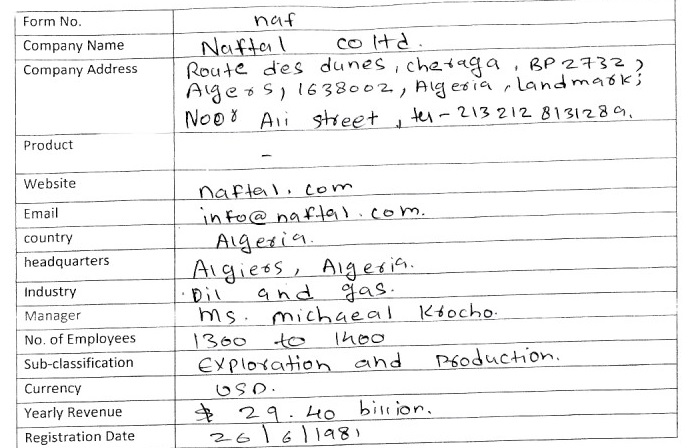 Form No. naf
Company Name Naftal co ltd.
Company Address Route des dunes, cheraga, BP 2732,
Algers, 1638002, Algeria, landmark;
Noor Ali street, tel - 213 212 8131289.
Product -
Website naftal.com
Email info@naftal.com.
country Algeria.
headquarters Algiers, Algeria.
Industry Oil and gas.
Manager Ms. michaeal Krocho.
No. of Employees 1300 to 1400
Sub-classification Exploration and Production.
Currency USD.
Yearly Revenue $ 29.40 billion.
Registration Date 26/6/1981